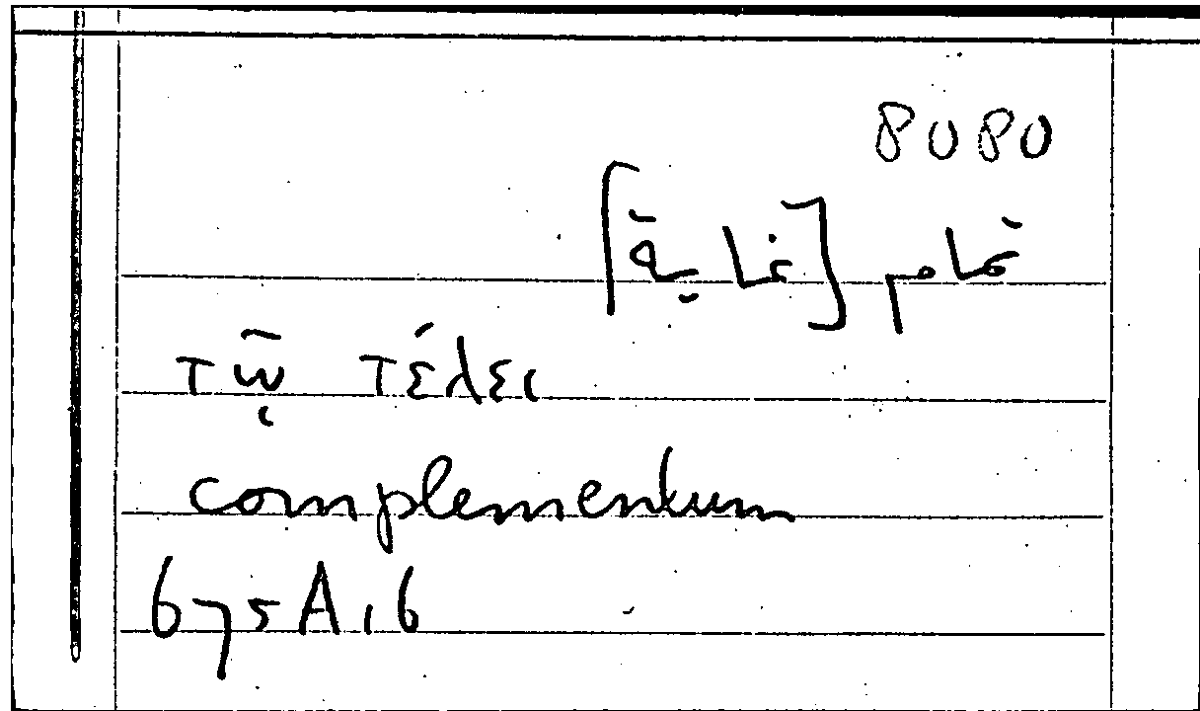 8080
تمام [غاية]
τῷ τέλει
complementum
675A16